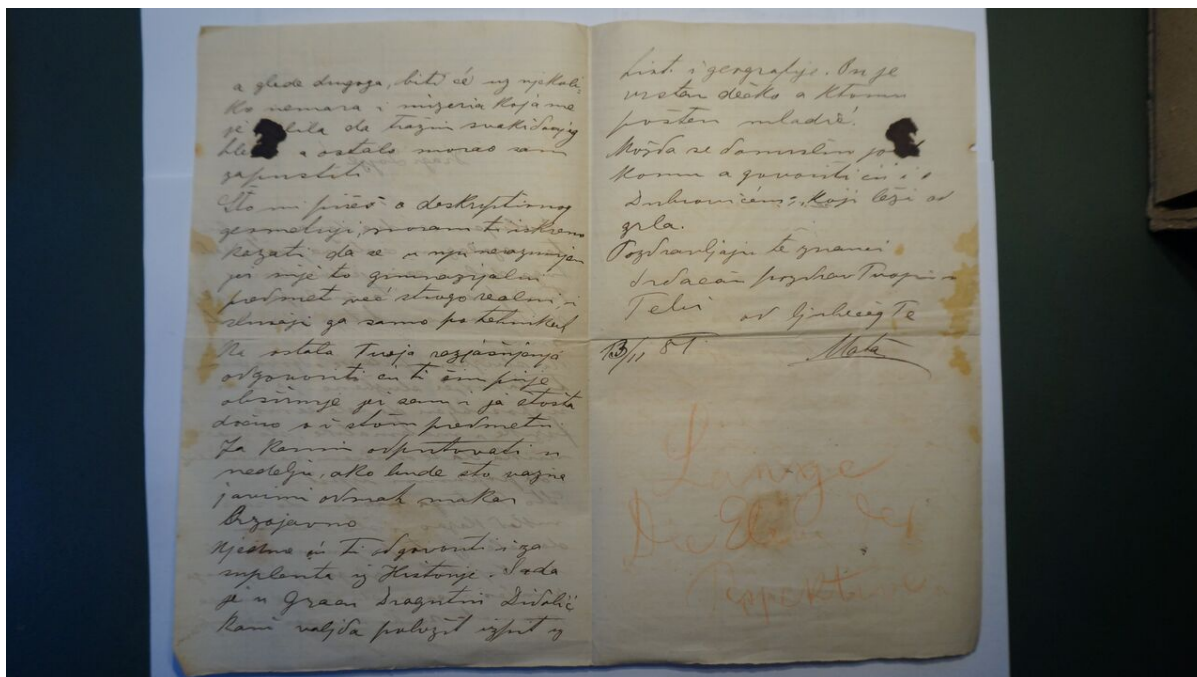 a glede drugoga, biti će uz njekoli-
ko nemara i mizeria koja me
je da tražim svakidanjeg
a ostalo morao sam
zapustiti
Što mi pišeš o deskriptivnoj
geometriji, moram ti iskreno
kazati da se u nju nerazumijem
jer nije to gimnazijalni
predmet već strogo realni, i
ga samo po tehnikah
Na ostala Tvoja razjašnjenja
odgovoriti ću ti čim prije
obširnije jer sam i ja štošta
o tom predmetu
Ja kanim odputovati u
nedelju, ako bude što vazna
javi mi odmah makar
brzojavno
ću ti odgovoriti i za
suplenta iz Historije. Sada
je u Gracu Dragutin
kani valjda položit izpit iz
hist. i geografije. On je
vrstan dečko a k tomu
pošten mladić.
Možda se domislim još
komu a govoriti ću i s
Dubrovićem, koji leži od
grla.
Pozdravljaju te znanci
Srdačan pozdrav Tvojim i
Tebi od ljubećeg Te
13/11 81 Mata
Lange
Die